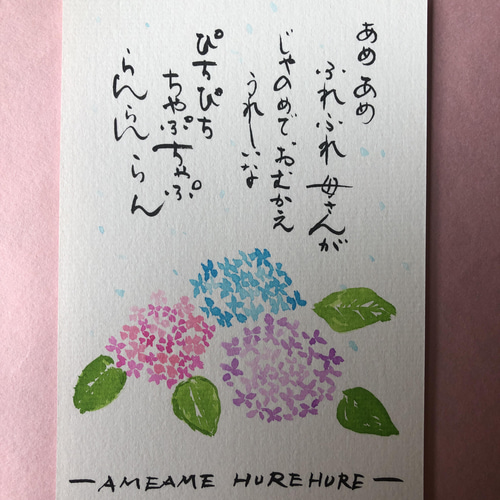 あめあめ
ふれふれ 母さんが
じゃのめで おむかえ
うれしいな
ぴちぴち
ちゃぷちゃぷ
らんらんらん
— AMEAME HUREHURE —